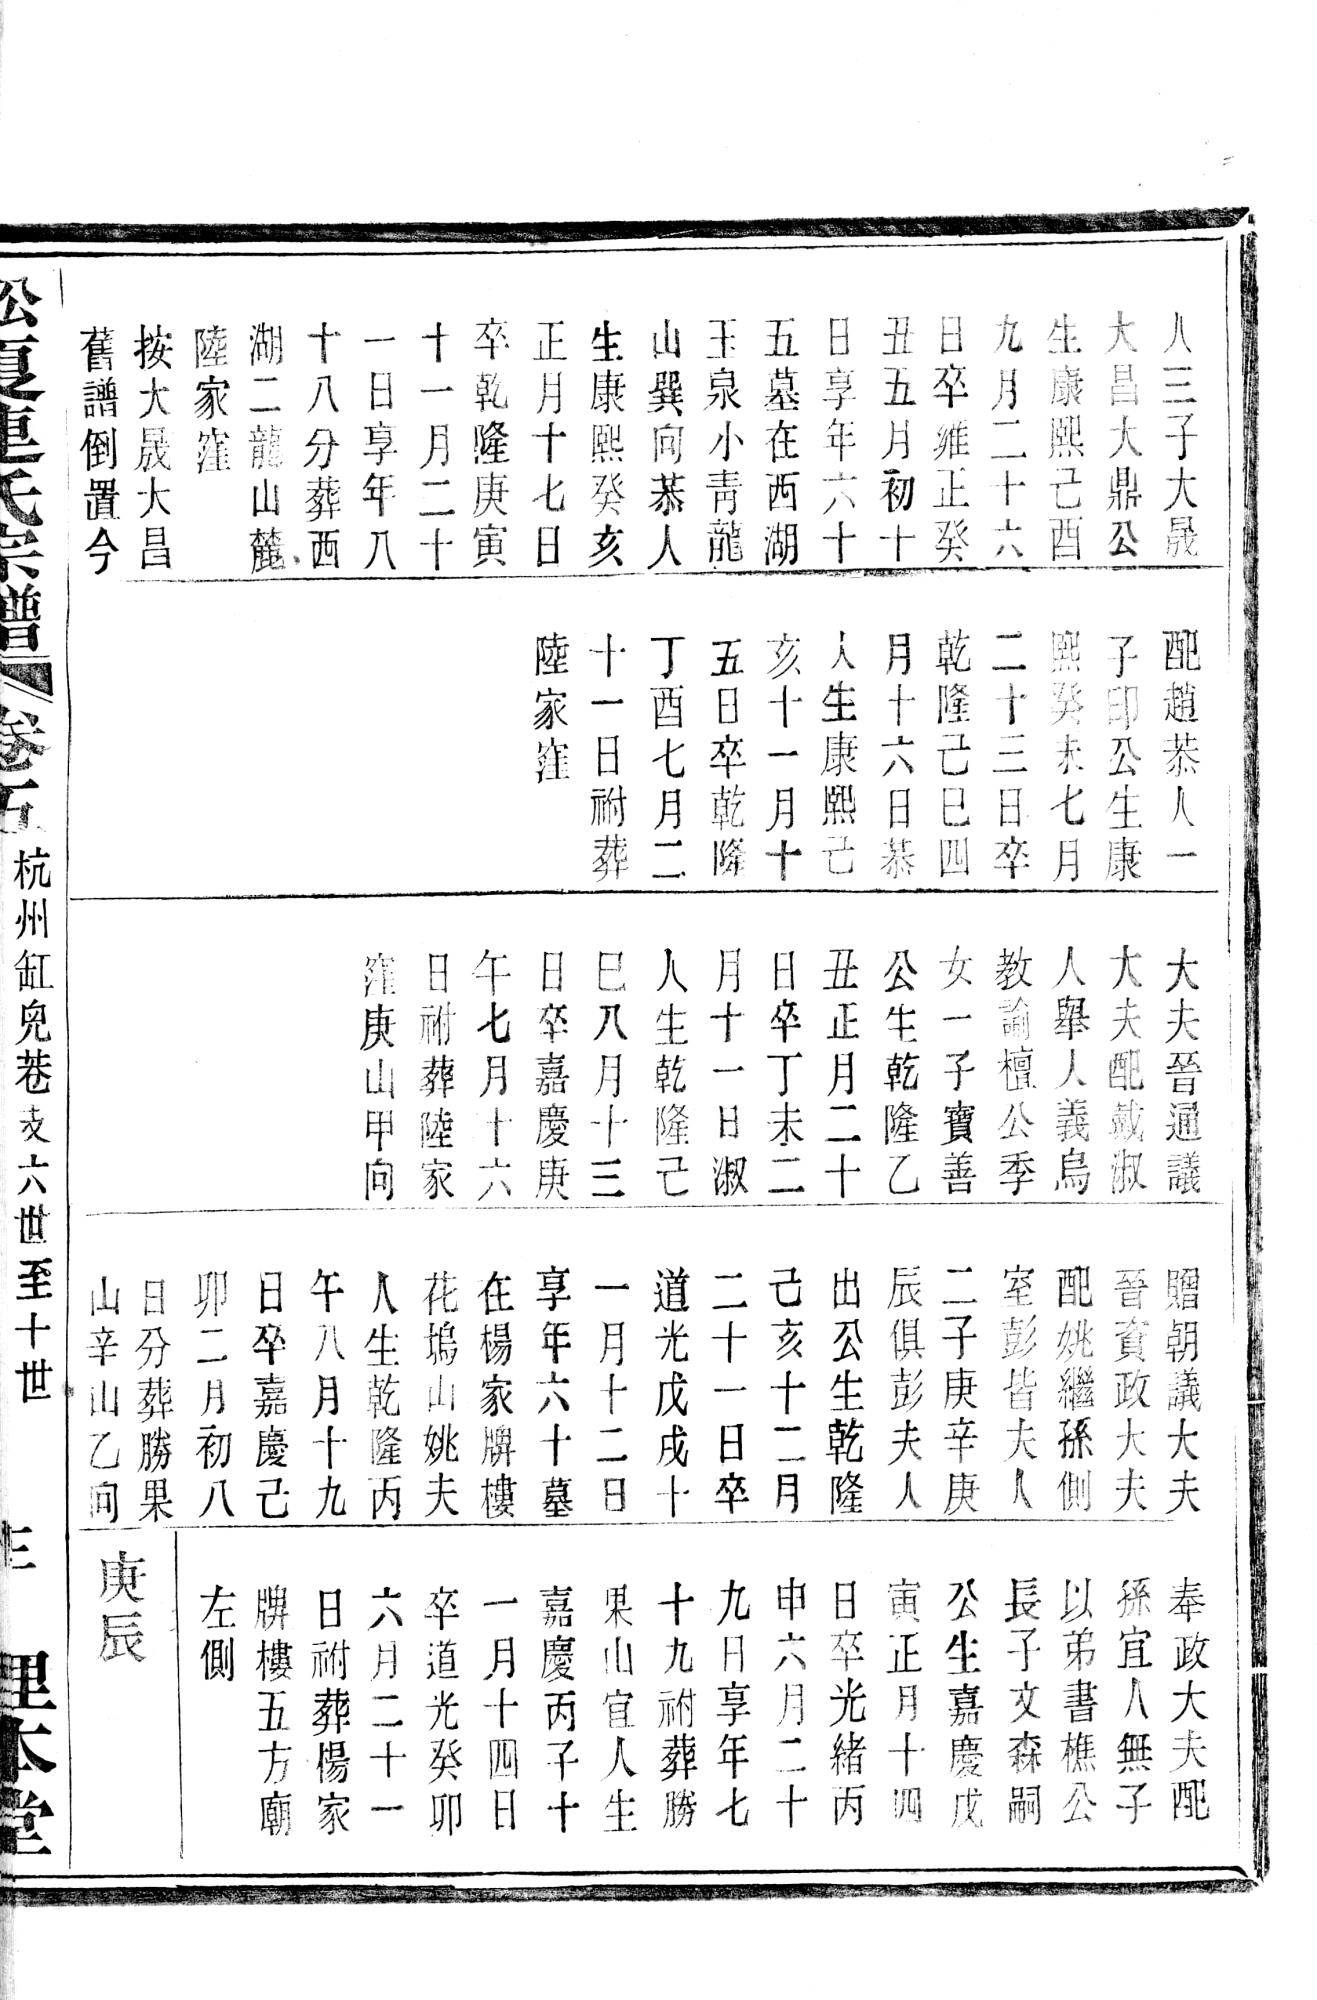 人三子大晟
大昌大鼎公
生康熙己酉
九月二十六
日卒雍正癸
丑五月初十
日享年六十
五墓在西湖
玉泉小青龍
山巽向恭人
生康熙癸亥
正月十七日
卒乾隆庚寅
十一月二十
一日享年八
十八分葬西
湖二龍山麓
陸家窪
按大晟大昌
舊譜倒置今
配趙恭人一
子印公生康
熙癸未七月
二十三日卒
乾隆己巳四
月十六日恭
人生康熙己
亥十一月十
五日卒乾隆
丁酉七月二
十一日祔葬
陸家窪
大夫晉通議
大夫配戴淑
人舉人義烏
教諭檀公季
女一子寶善
公生乾隆乙
丑正月二十
日卒丁未二
月十一日淑
人生乾隆己
巳八月十三
日卒嘉慶庚
午七月十六
日祔葬陸家
窪庚山甲向
贈朝議大夫
晉資政大夫
配姚繼孫側
室彭皆夫人
二子庚辛庚
辰俱彭夫人
出公生乾隆
己亥十二月
二十一日卒
道光戊戌十
一月十二日
享年六十墓
在楊家牌樓
花塢山姚夫
人生乾隆丙
午八月十九
日卒嘉慶己
卯二月初八
日分葬勝果
山辛山乙向
奉政大夫配
孫宜人無子
以弟書樵公
長子文森嗣
公生嘉慶戊
寅正月十四
日卒光緒丙
申六月二十
九日享年七
十九祔葬勝
果山宜人生
嘉慶丙子十
一月十四日
卒道光癸卯
六月二十一
日祔葬楊家
牌樓五方廟
左側
庚辰
松夏連氏宗譜
卷五
杭州缸兒巷支六世至十世
三
理本堂